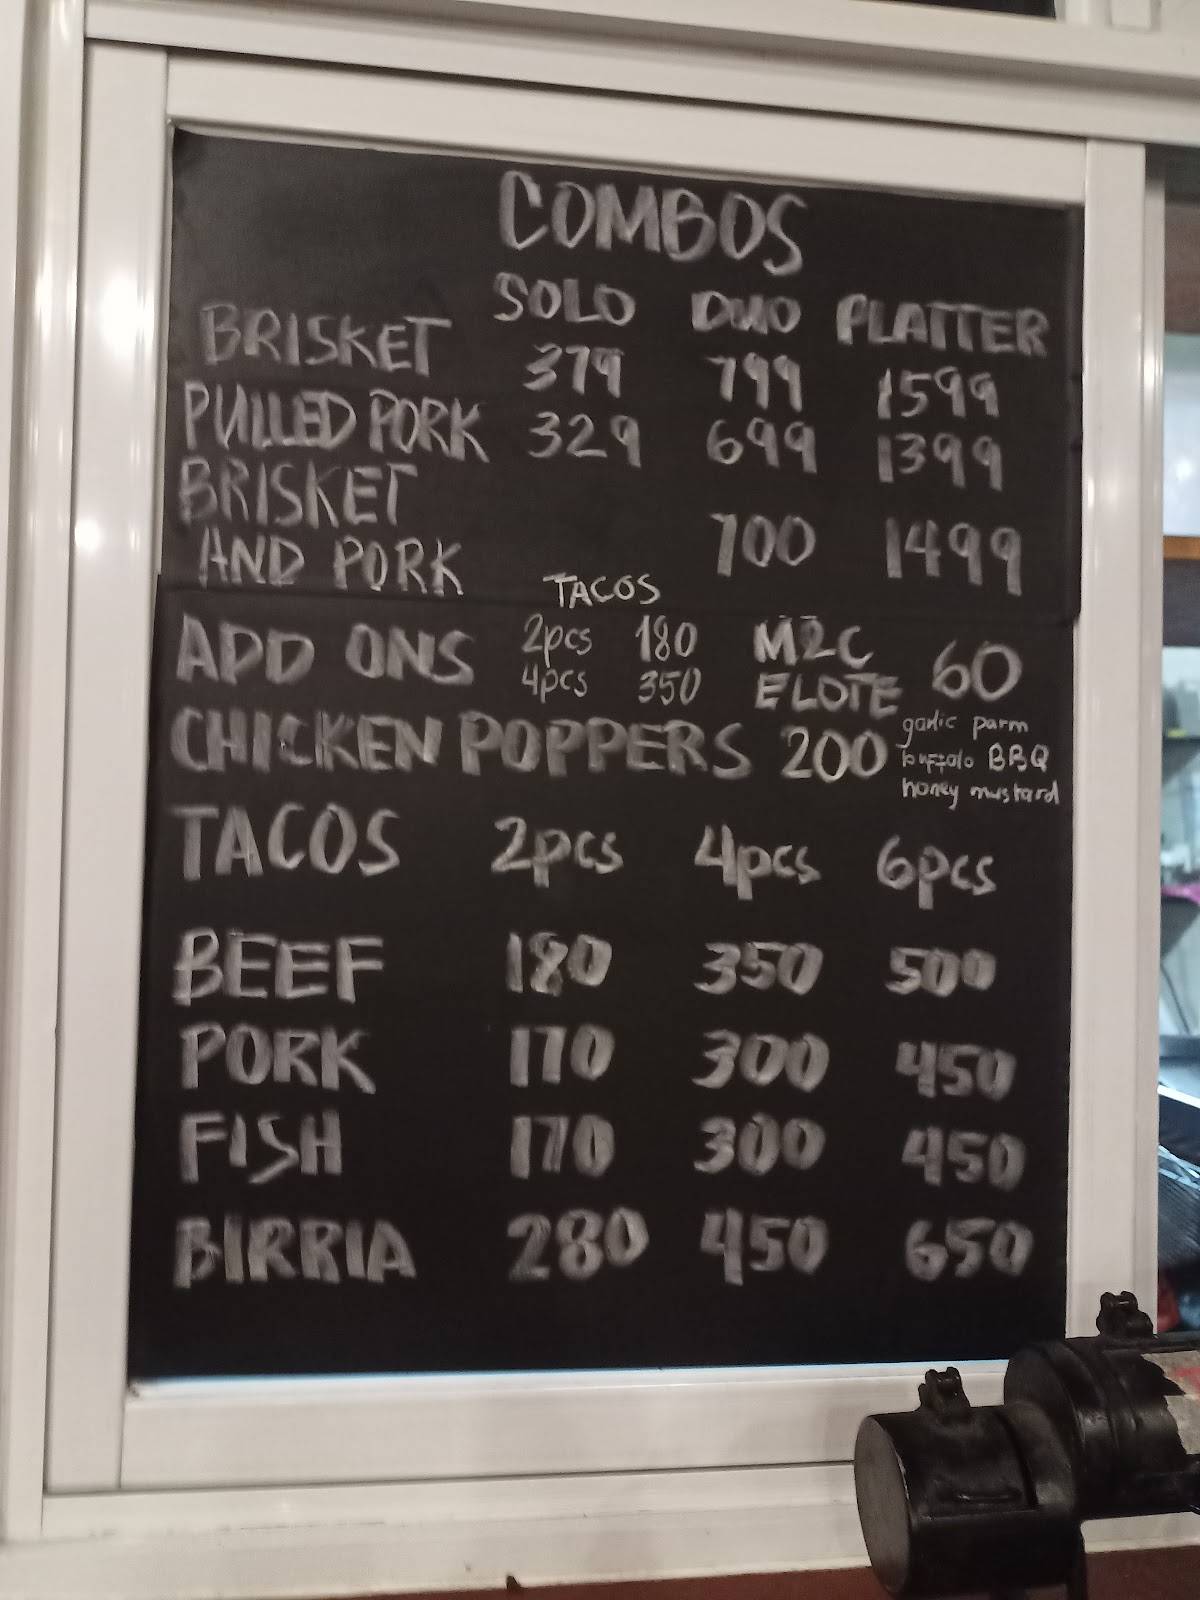 COMBOS
SOLO DUO PLATTER
BRISKET 379 799 1599
PULLED PORK 329 699 1399
BRISKET
AND PORK 700 1499
TACOS
ADD ONS 2pcs 180 M2C 60
4pcs 350 ELOTE
CHICKEN POPPERS 200 garlic parm
buffalo BBQ
honey mustard
TACOS 2pcs 4pcs 6pcs
BEEF 180 350 500
PORK 170 300 450
FISH 170 300 450
BIRRIA 280 450 650